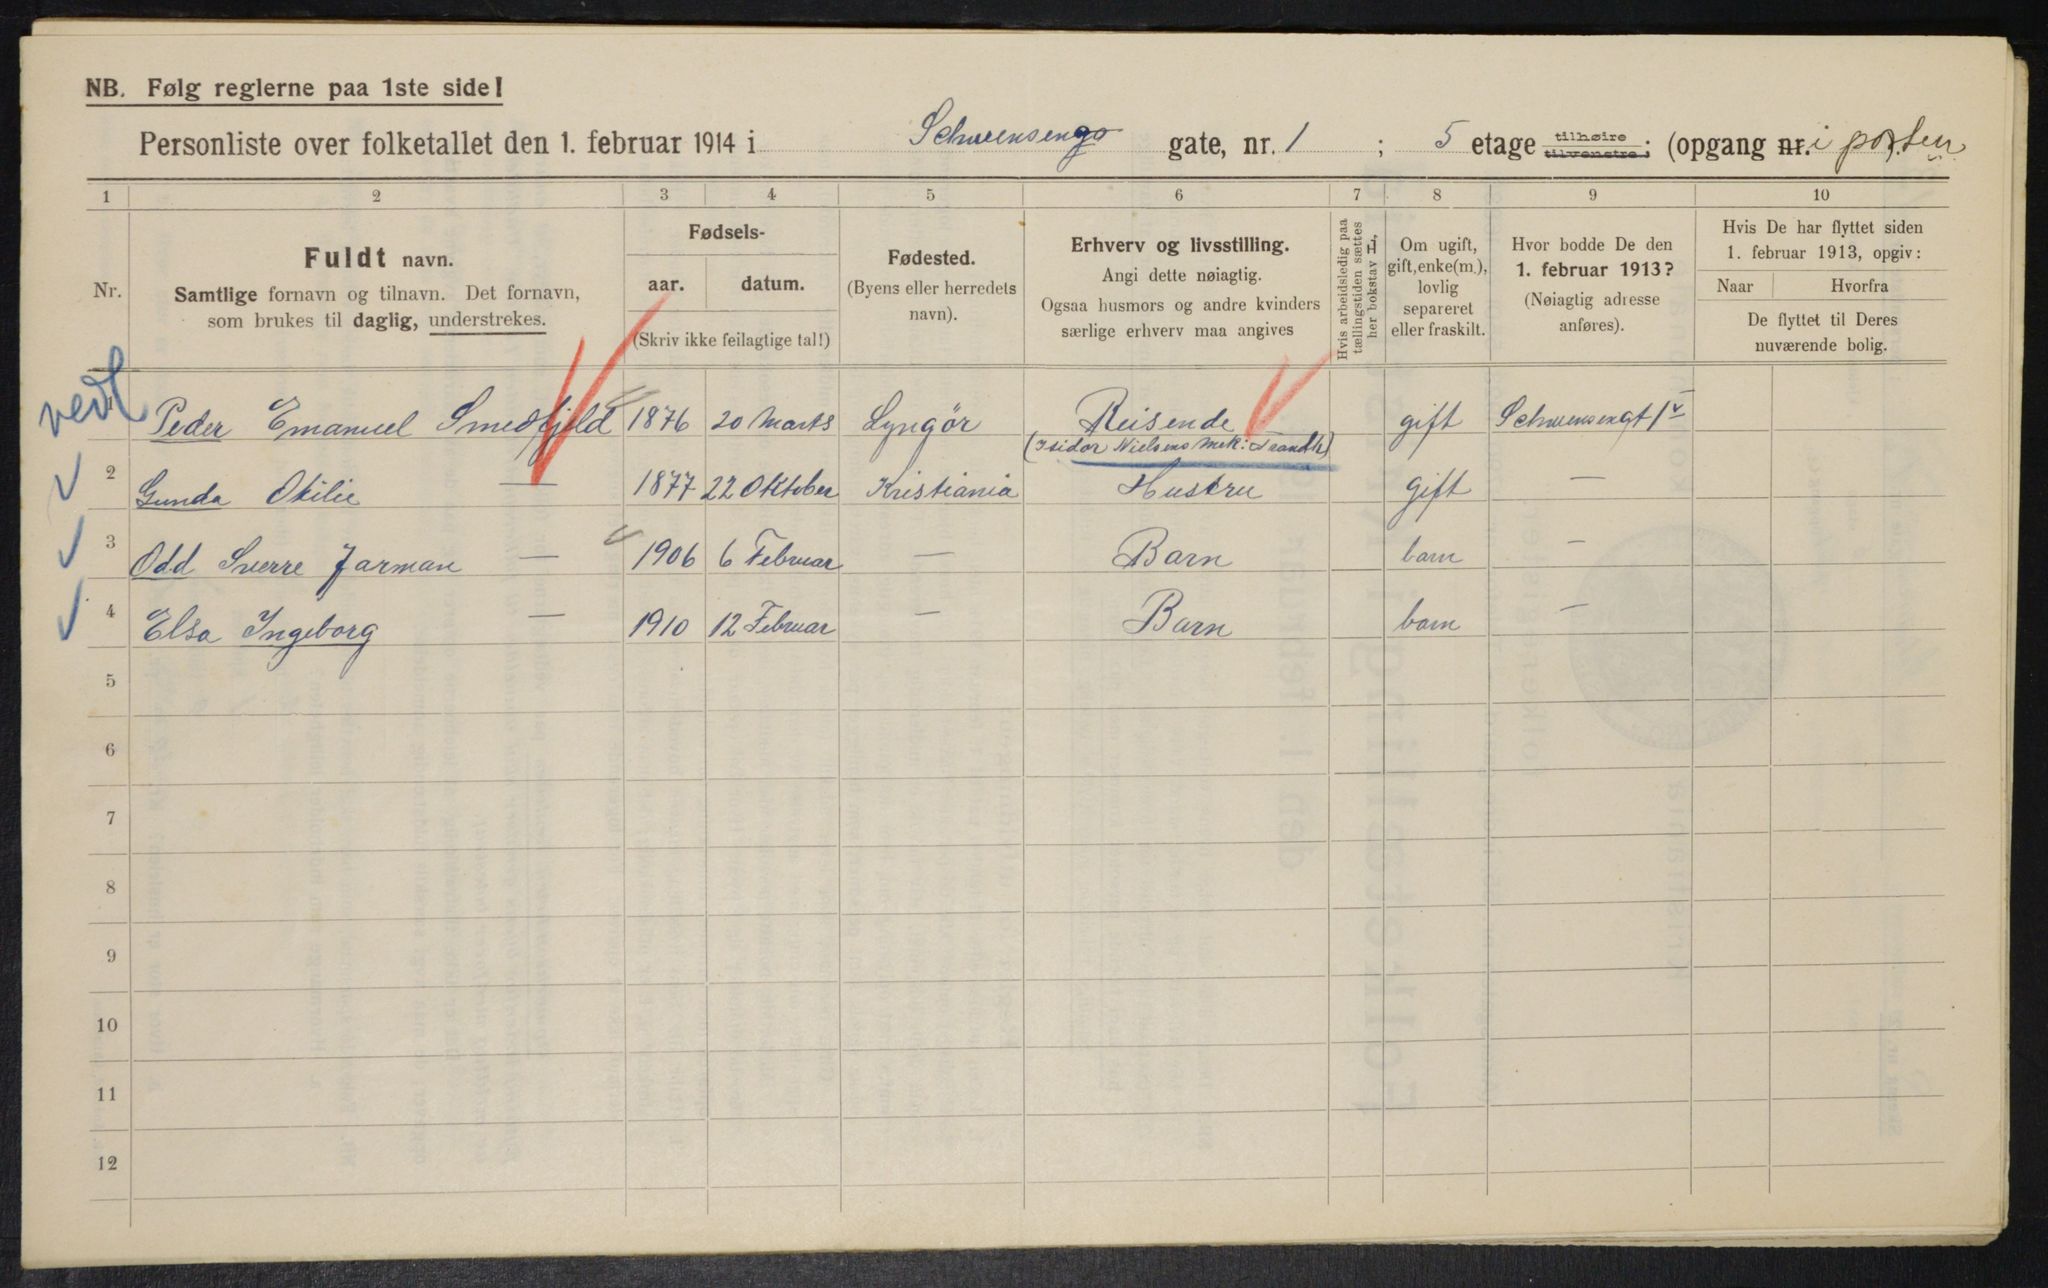 NB. Følg reglerne paa 1ste side!
Personliste over folketallet den 1. februar 1914 i Schwensengo gate, nr. 1 ; 5 etage tilhøire tilvenstre; (opgang nr. i porten
1 2 3 4 5 6 7 8 9 10
Nr.
Fuldt navn.
Samtlige fornavn og tilnavn. Det fornavn,
som brukes til daglig, understrekes.
Fødsels-
aar. datum.
(Skriv ikke feilagtige tal!)
Fødested.
(Byens eller herredets
navn).
Erhverv og livsstilling.
Angi dette nøiagtig.
Ogsaa husmors og andre kvinders
særlige erhverv maa angives
Hvis arbeidsledig paa
tællingstiden sættes
her bokstav L,
Om ugift,
gift, enke(m.),
lovlig
separeret
eller fraskilt.
Hvor bodde De den
1. februar 1913?
(Nøiagtig adresse
anføres).
Hvis De har flyttet siden
1. februar 1913, opgiv:
Naar Hvorfra
De flyttet til Deres
nuværende bolig.
Peder Emanuel Smedfjeld 1876 20 Marts Lyngör Reisende gift Schwensengt 1 V
(Isidor Nielsens Mek: Trondh)
2 Gunda Otilie — 1877 22 Oktober Kristiania Hustru gift —
3 Odd Sverre Jarman — 1906 6 Februar — Barn barn —
4 Elsa Ingeborg — 1910 12 Februar — Barn barn —
5
6
7
8
9
10
11
12